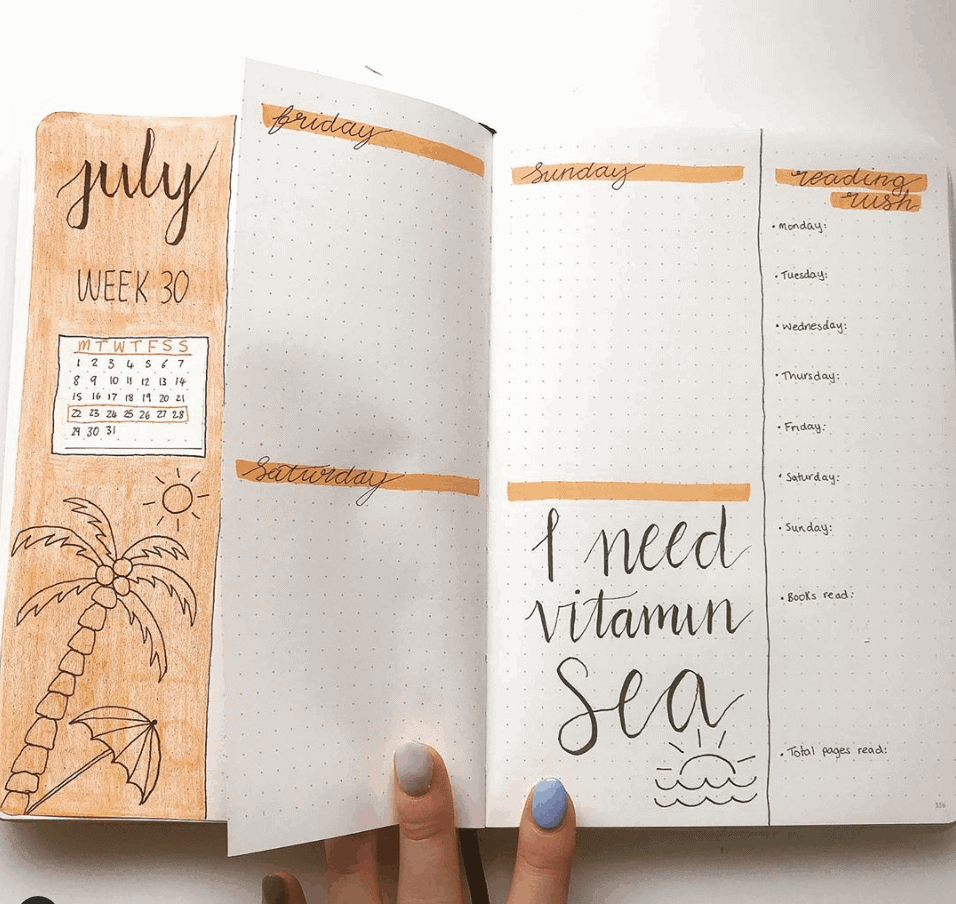 july
WEEK 30
M T W T F S S
1 2 3 4 5 6 7
8 9 10 11 12 13 14
15 16 17 18 19 20 21
22 23 24 25 26 27 28
29 30 31
friday
saturday
sunday
I need
vitamin
sea
reading
rush
• Monday:
• Tuesday:
• Wednesday:
• Thursday:
• Friday:
• Saturday:
• Sunday:
• Books read:
• Total pages read: